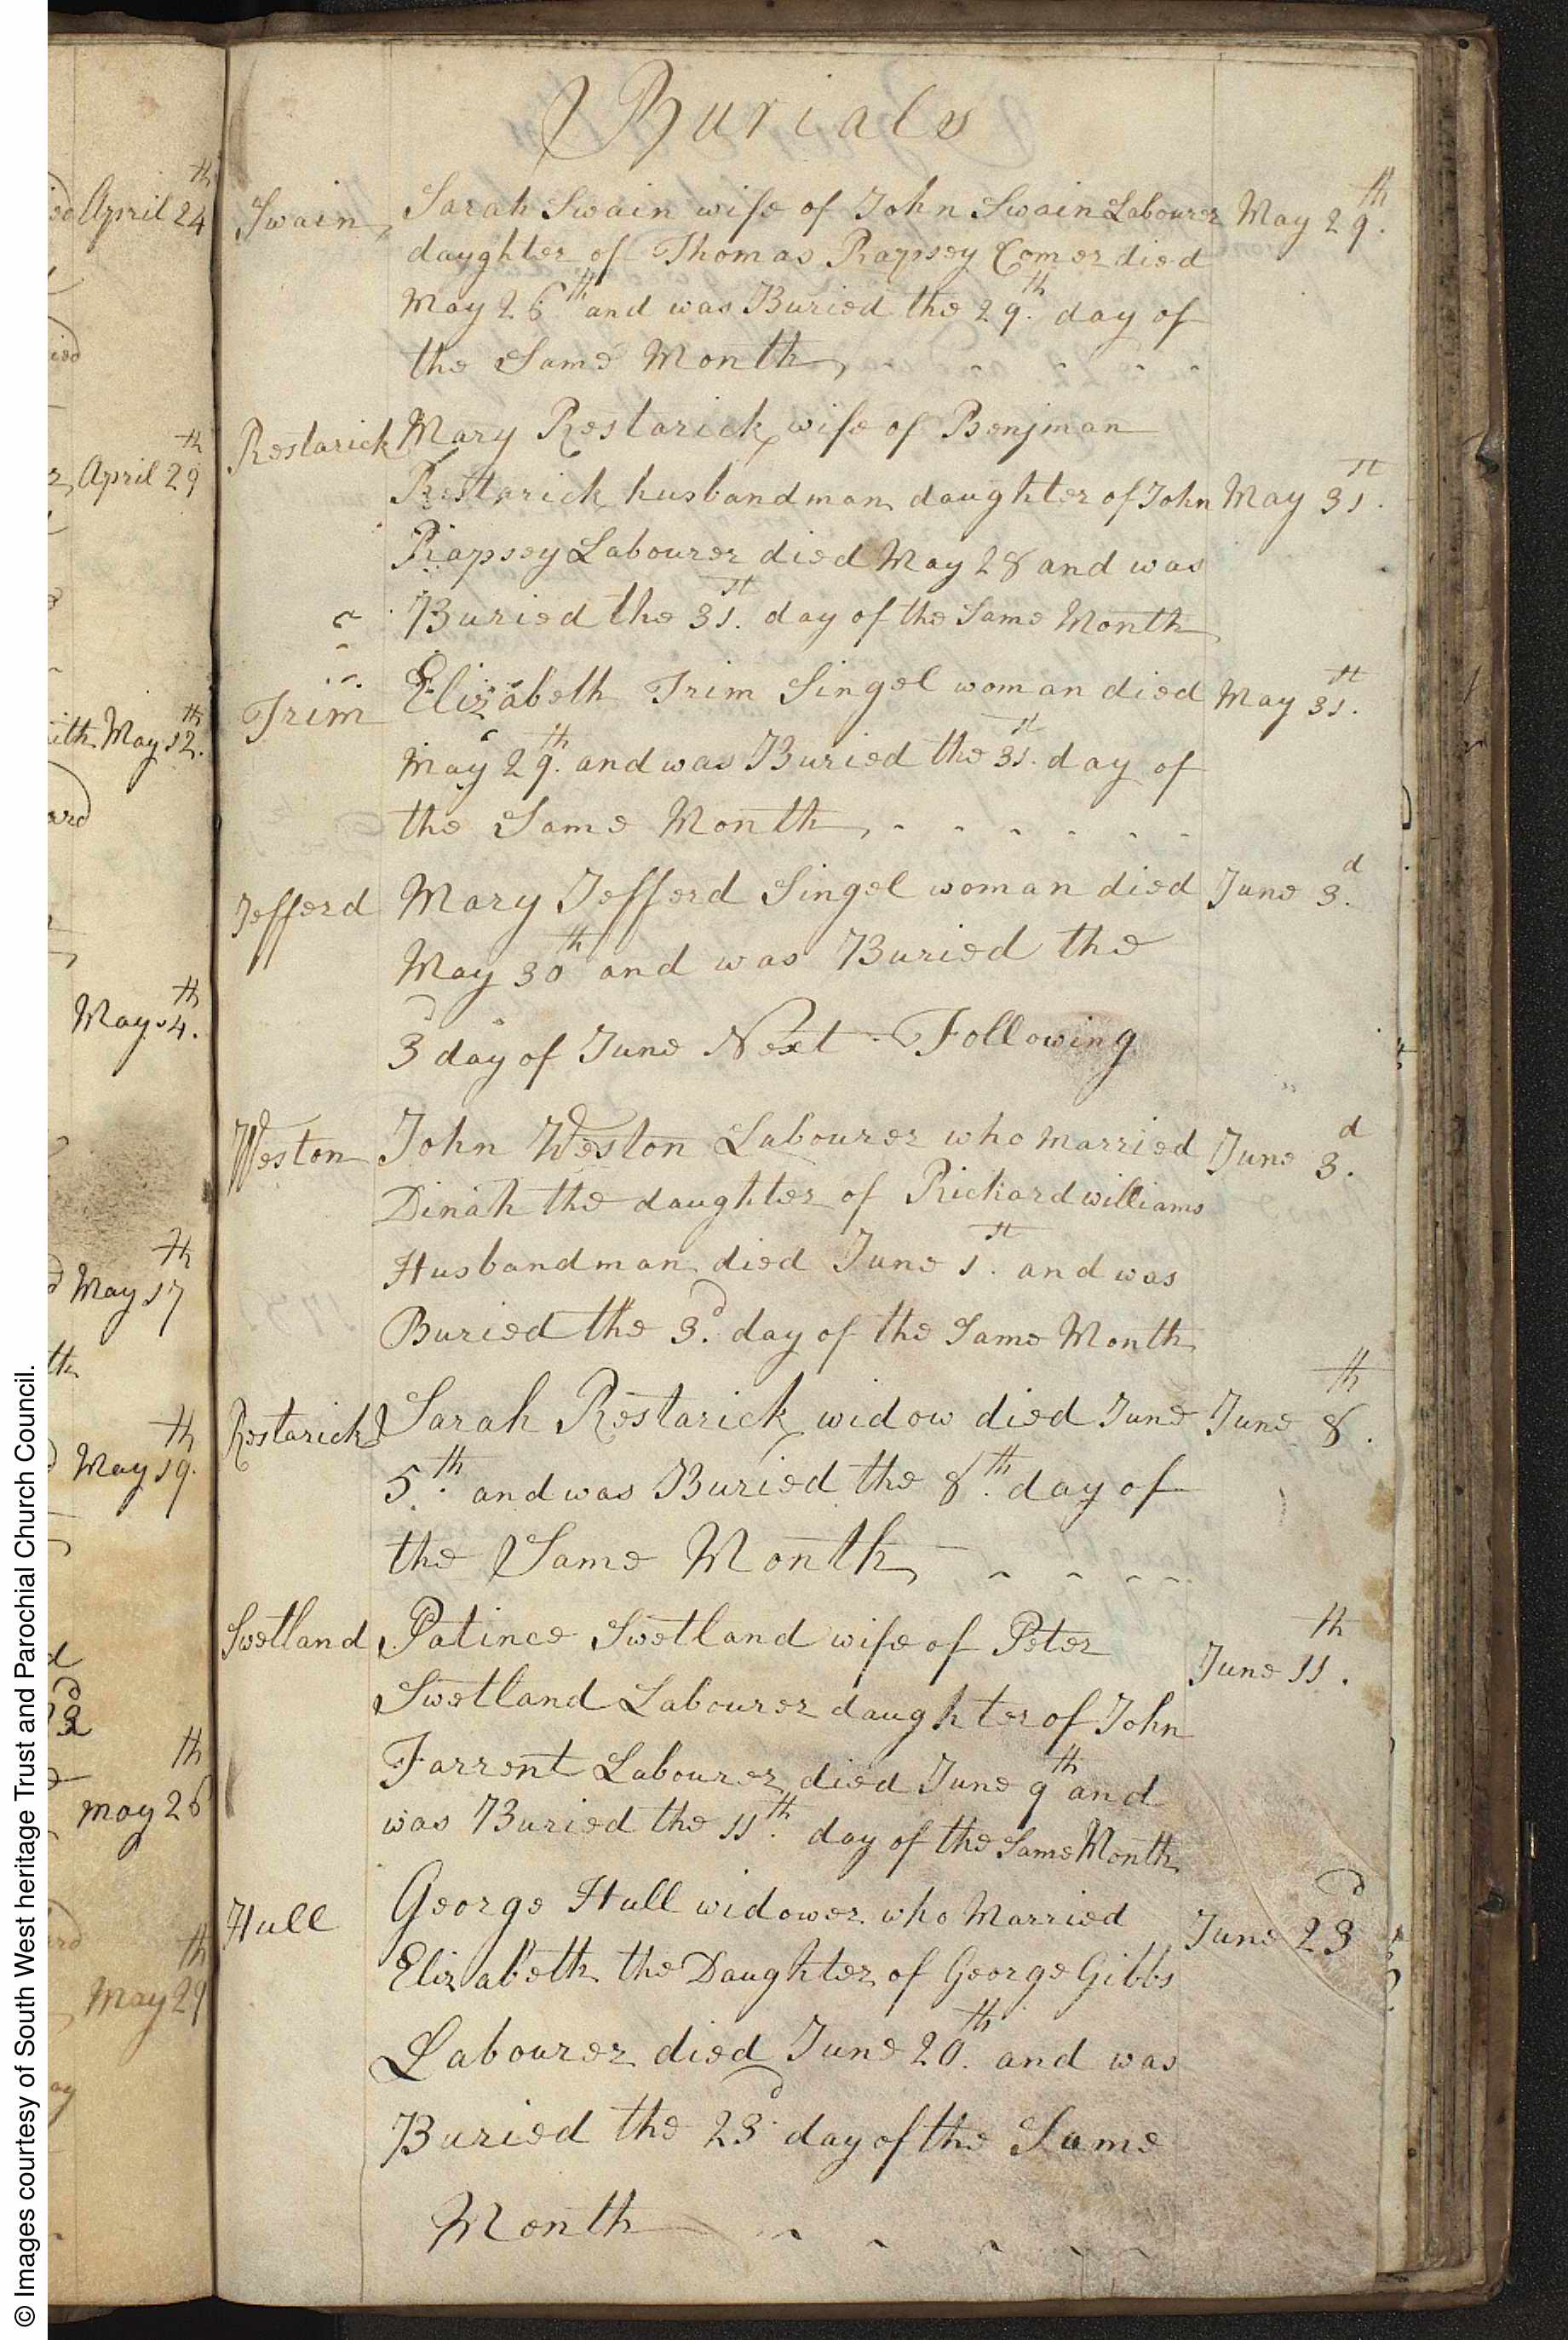 Burials
Swain, Sarah Swain wife of John Swain Labourer May 29th.
daughter of Thomas Rapsey Comer died
May 26th and was Buried the 29th. day of
the Same Month, - - - - -
Restarick Mary Restarick wife of Benjman
Restarick husbandman daughter of John May 31st.
Rapsey Labourer died May 28 and was
Buried the 31st. day of the Same Month
Trim Elizabeth Trim Singel woman died May 31st.
May 29th. and was Buried the 31st. day of
the Same Month, - - - - - -
Jefferd Mary Jefferd Singel woman died June 3d.
May 30th and was Buried the
3d day of June Next Following
Weston John Weston Labourer who Married June 3d.
Dinah the daughter of Richard williams
Husbandman died June 1st. and was
Buried the 3d. day of the Same Month
Restarick Sarah Restarick widow died June June 8th.
5th. and was Buried the 8th. day of
the Same Month, - - - - -
Swetland Patince Swetland wife of Peter June 11th.
Swetland Labourer daughter of John
Farrent Labourer died June 9th and
was Buried the 11th. day of the Same Month
Hull George Hull widower who Married June 23d
Elizabeth the Daughter of George Gibbs
Labourer died June 20th. and was
Buried the 23d day of the Same
Month - - - - -
April 24th
April 29th
May 12th.
May 14th.
May 17th
May 19th.
may 26th
May 29th
© Images courtesy of South West heritage Trust and Parochial Church Council.